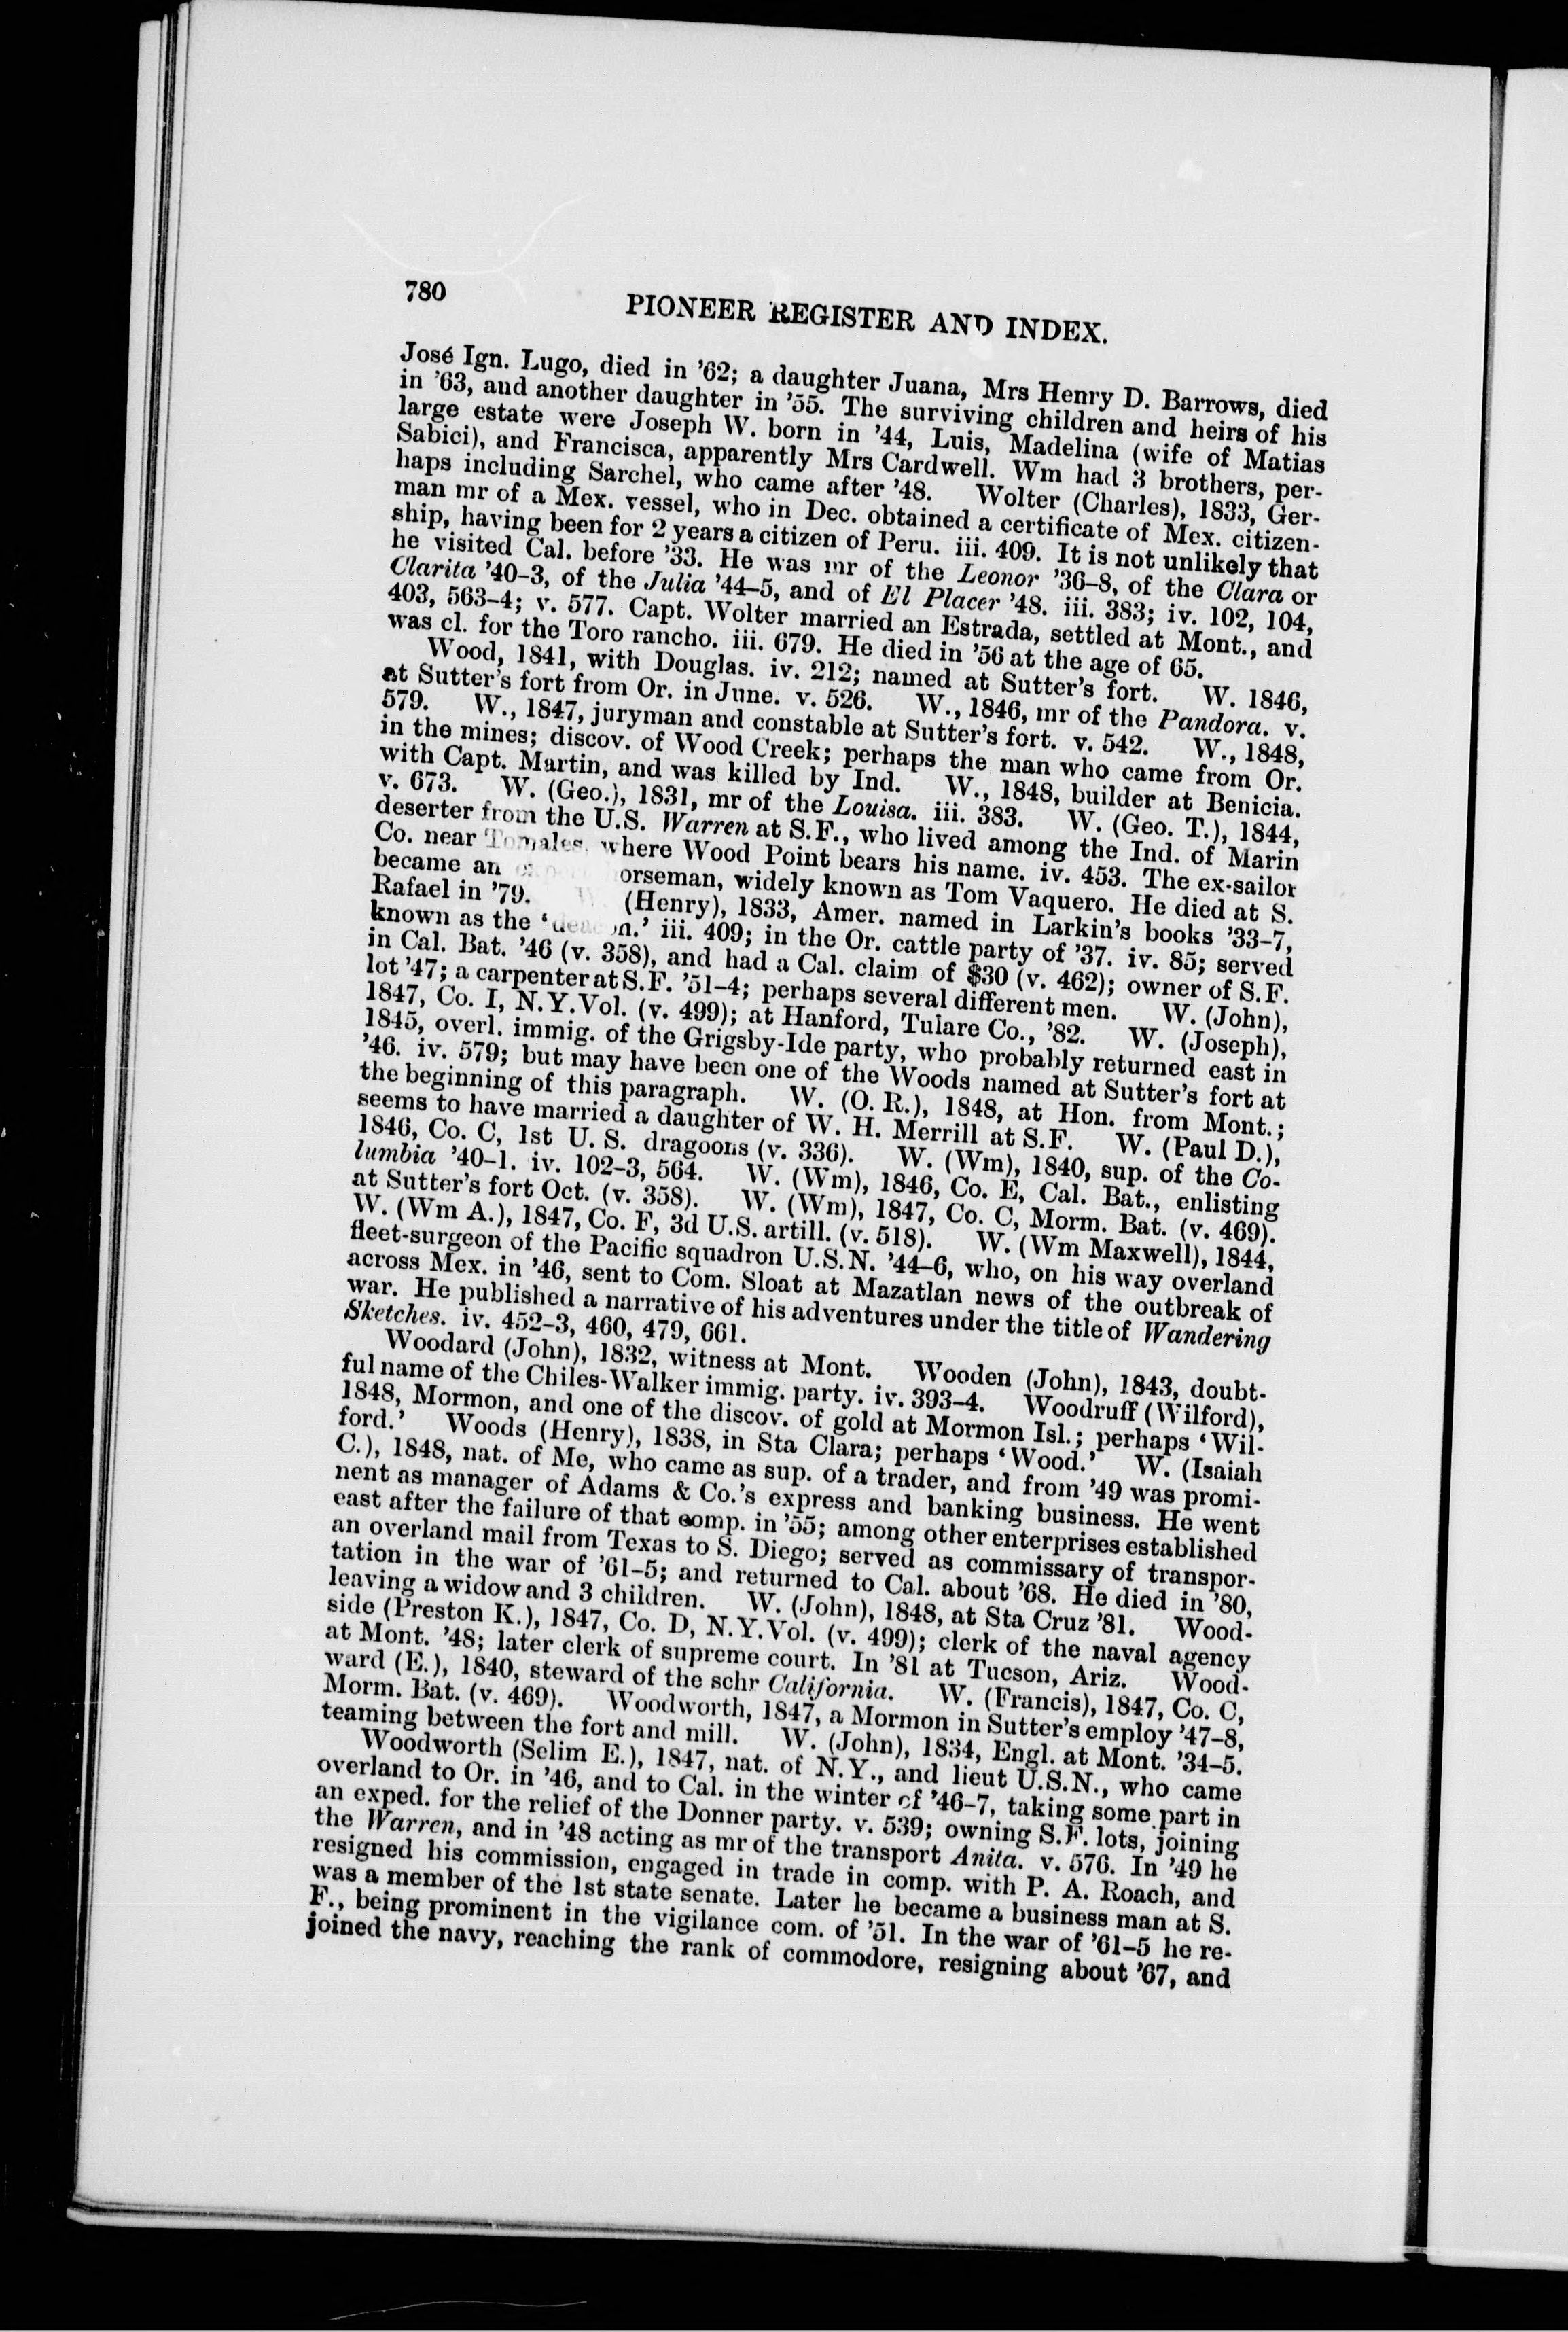 780
PIONEER REGISTER AND INDEX.
José Ign. Lugo, died in '62; a daughter Juana, Mrs Henry D. Barrows, died
in '63, and another daughter in '55. The surviving children and heirs of his
large estate were Joseph W. born in '44, Luis, Madelina (wife of Matias
Sabici), and Francisca, apparently Mrs Cardwell. Wm had 3 brothers, per-
haps including Sarchel, who came after '48. Wolter (Charles), 1833, Ger-
man mr of a Mex. vessel, who in Dec. obtained a certificate of Mex. citizen-
ship, having been for 2 years a citizen of Peru. iii. 409. It is not unlikely that
he visited Cal. before '33. He was mr of the Leonor '36-8, of the Clara or
Clarita '40-3, of the Julia '44-5, and of El Placer '48. iii. 383; iv. 102, 104,
403, 563-4; v. 577. Capt. Wolter married an Estrada, settled at Mont., and
was cl. for the Toro rancho. iii. 679. He died in '56 at the age of 65.
Wood, 1841, with Douglas. iv. 212; named at Sutter's fort. W. 1846,
at Sutter's fort from Or. in June. v. 526. W., 1846, mr of the Pandora. v.
579. W., 1847, juryman and constable at Sutter's fort. v. 542. W., 1848,
in the mines; discov. of Wood Creek; perhaps the man who came from Or.
with Capt. Martin, and was killed by Ind. W., 1848, builder at Benicia.
v. 673. W. (Geo.), 1831, mr of the Louisa. iii. 383. W. (Geo. T.), 1844,
deserter from the U.S. Warren at S.F., who lived among the Ind. of Marin
Co. near Tomales, where Wood Point bears his name. iv. 453. The ex-sailor
became an expert horseman, widely known as Tom Vaquero. He died at S.
Rafael in '79. W. (Henry), 1833, Amer. named in Larkin's books '33-7,
known as the 'deacon.' iii. 409; in the Or. cattle party of '37. iv. 85; served
in Cal. Bat. '46 (v. 358), and had a Cal. claim of $30 (v. 462); owner of S.F.
lot '47; a carpenter at S.F. '51-4; perhaps several different men. W. (John),
1847, Co. I, N.Y.Vol. (v. 499); at Hanford, Tulare Co., '82. W. (Joseph),
1845, overl. immig. of the Grigsby-Ide party, who probably returned east in
'46. iv. 579; but may have been one of the Woods named at Sutter's fort at
the beginning of this paragraph. W. (O. R.), 1848, at Hon. from Mont.;
seems to have married a daughter of W. H. Merrill at S.F. W. (Paul D.),
1846, Co. C, 1st U. S. dragoons (v. 336). W. (Wm), 1840, sup. of the Co-
lumbia '40-1. iv. 102-3, 564. W. (Wm), 1846, Co. E, Cal. Bat., enlisting
at Sutter's fort Oct. (v. 358). W. (Wm), 1847, Co. C, Morm. Bat. (v. 469).
W. (Wm A.), 1847, Co. F, 3d U.S. artill. (v. 518). W. (Wm Maxwell), 1844,
fleet-surgeon of the Pacific squadron U.S.N. '44-6, who, on his way overland
across Mex. in '46, sent to Com. Sloat at Mazatlan news of the outbreak of
war. He published a narrative of his adventures under the title of Wandering
Sketches. iv. 452-3, 460, 479, 661.
Woodard (John), 1832, witness at Mont. Wooden (John), 1843, doubt-
ful name of the Chiles-Walker immig. party. iv. 393-4. Woodruff (Wilford),
1848, Mormon, and one of the discov. of gold at Mormon Isl.; perhaps 'Wil-
ford.' Woods (Henry), 1838, in Sta Clara; perhaps 'Wood.' W. (Isaiah
C.), 1848, nat. of Me, who came as sup. of a trader, and from '49 was promi-
nent as manager of Adams & Co.'s express and banking business. He went
east after the failure of that comp. in '55; among other enterprises established
an overland mail from Texas to S. Diego; served as commissary of transpor-
tation in the war of '61-5; and returned to Cal. about '68. He died in '80,
leaving a widow and 3 children. W. (John), 1848, at Sta Cruz '81. Wood-
side (Preston K.), 1847, Co. D, N.Y.Vol. (v. 499); clerk of the naval agency
at Mont. '48; later clerk of supreme court. In '81 at Tucson, Ariz. Wood-
ward (E.), 1840, steward of the schr California. W. (Francis), 1847, Co. C,
Morm. Bat. (v. 469). Woodworth, 1847, a Mormon in Sutter's employ '47-8,
teaming between the fort and mill. W. (John), 1834, Engl. at Mont. '34-5.
Woodworth (Selim E.), 1847, nat. of N.Y., and lieut U.S.N., who came
overland to Or. in '46, and to Cal. in the winter of '46-7, taking some part in
an exped. for the relief of the Donner party. v. 539; owning S.F. lots, joining
the Warren, and in '48 acting as mr of the transport Anita. v. 576. In '49 he
resigned his commission, engaged in trade in comp. with P. A. Roach, and
was a member of the 1st state senate. Later he became a business man at S.
F., being prominent in the vigilance com. of '51. In the war of '61-5 he re-
joined the navy, reaching the rank of commodore, resigning about '67, and